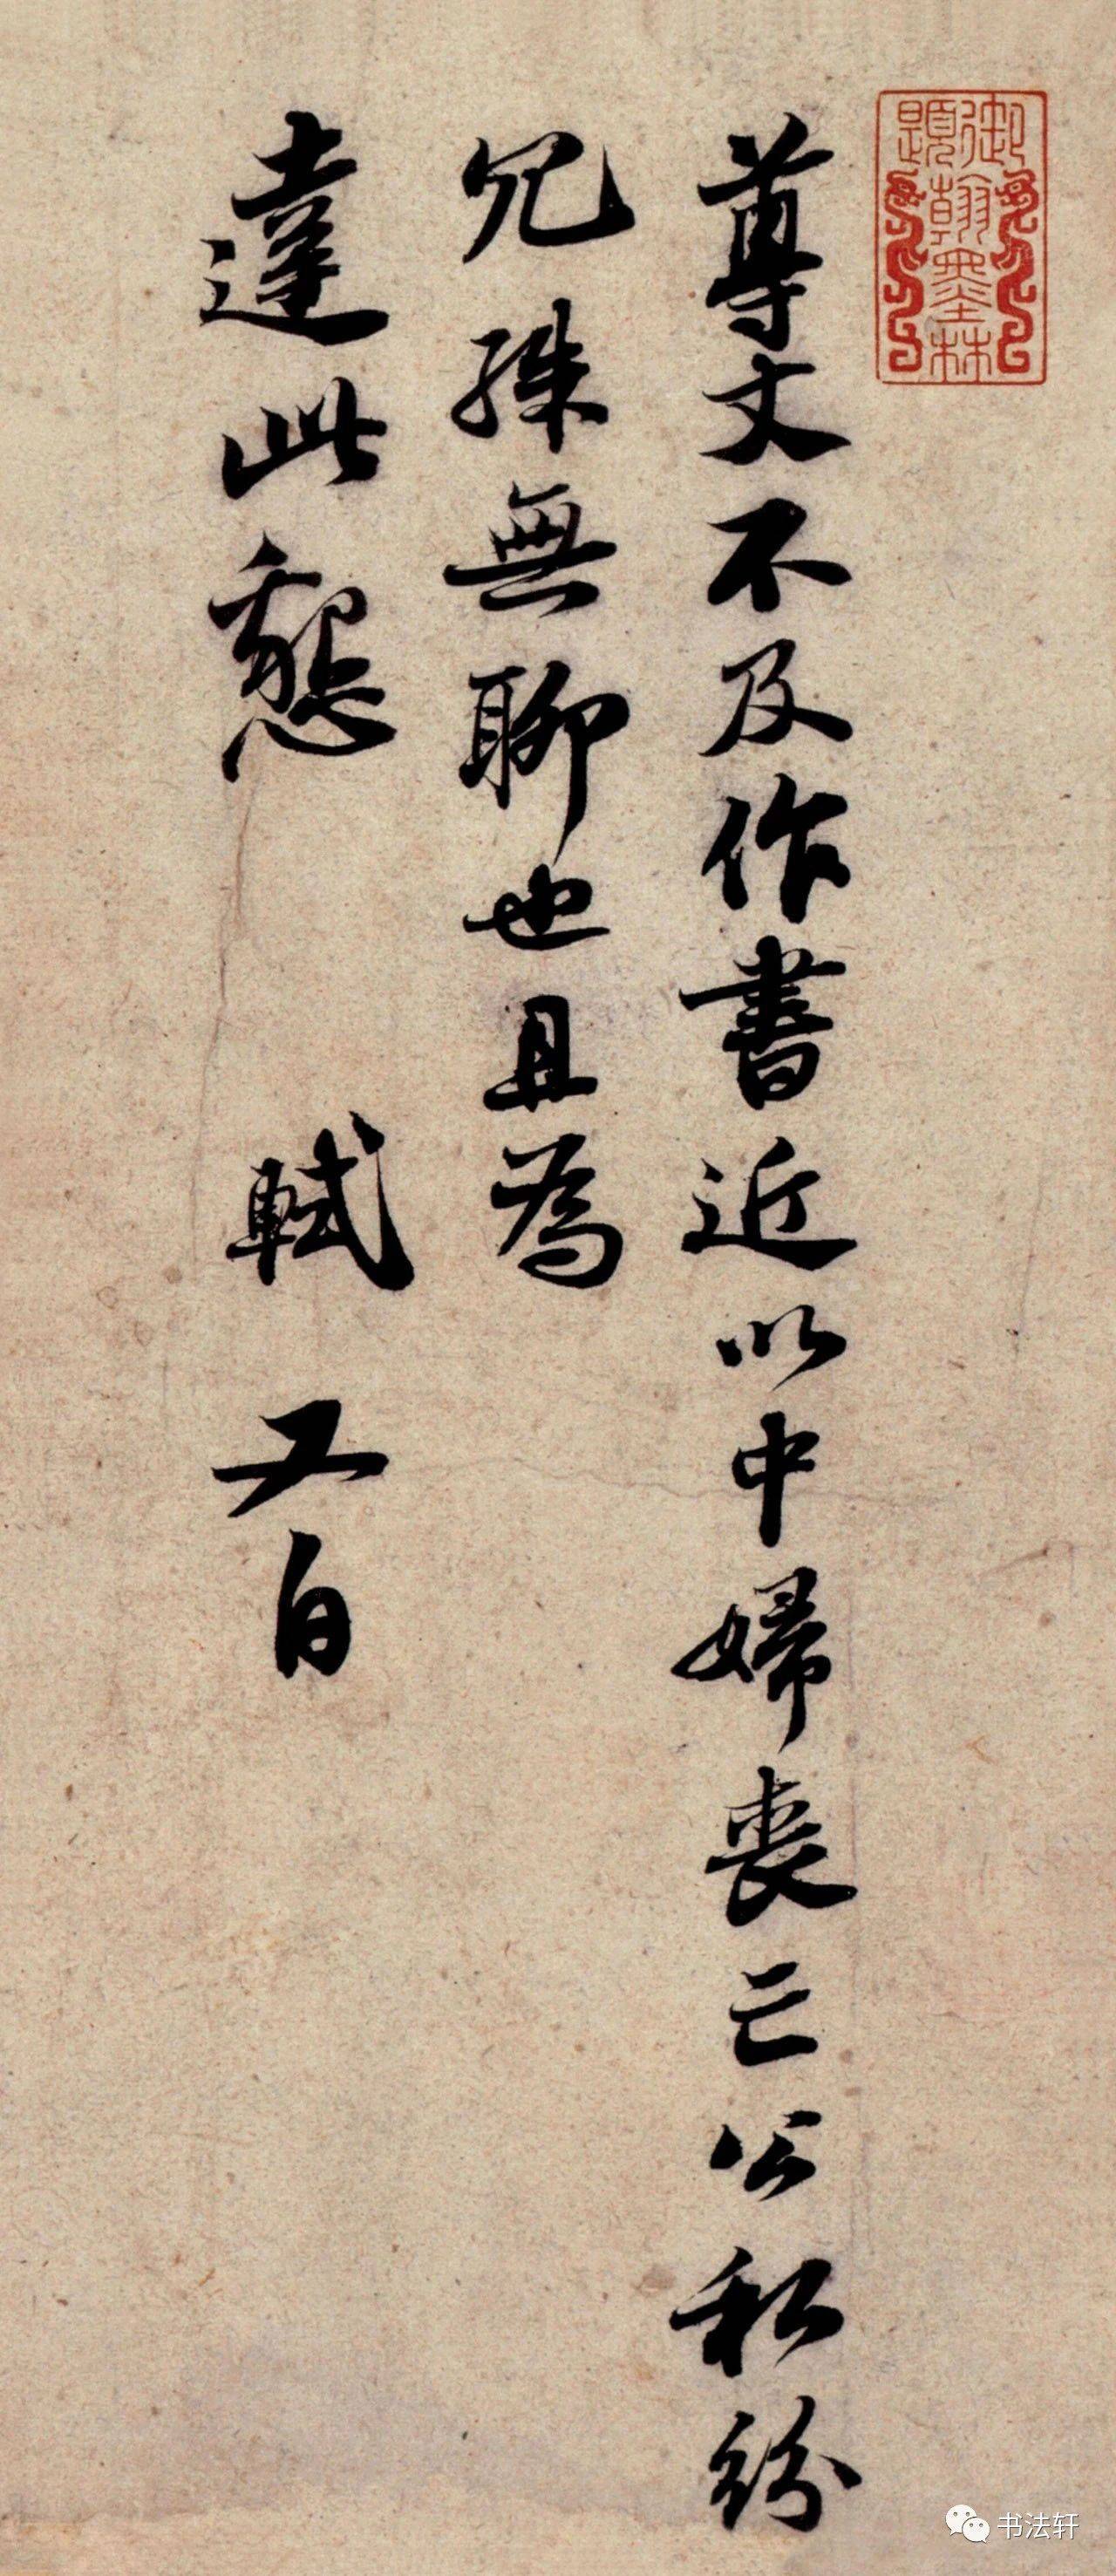 御題翰墨林
尊丈不及作書近以中婦喪亡公私紛
冗殊無聊也且為
達此懇　軾又白
书法轩